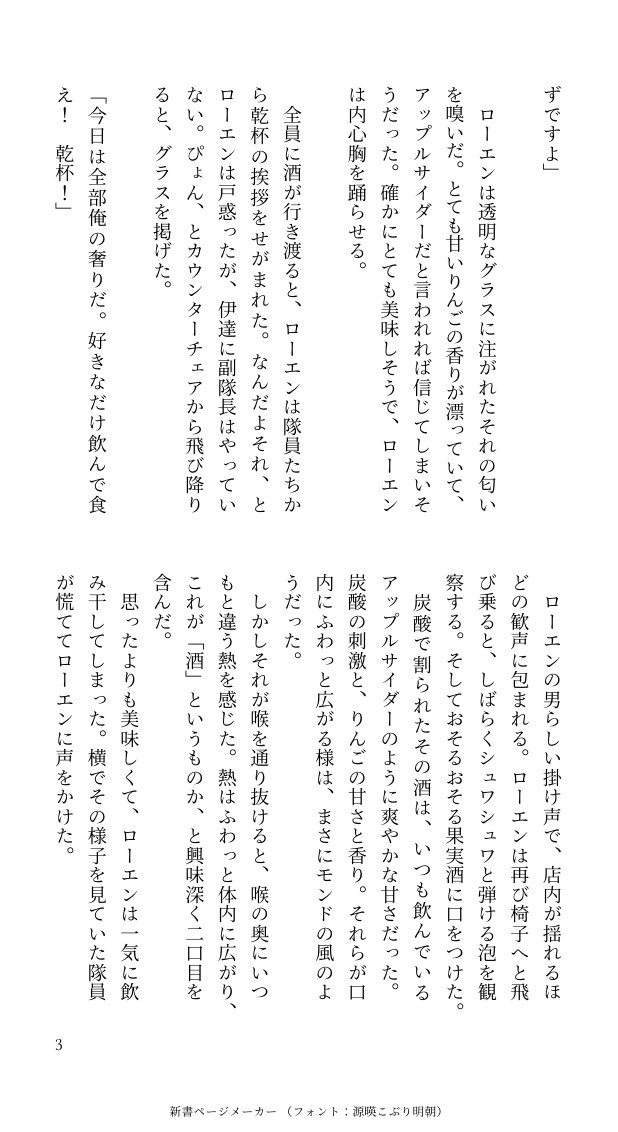 ずですよ」
ローエンは透明なグラスに注がれたそれの匂い
を嗅いだ。とても甘いりんごの香りが漂っていて、
アップルサイダーだと言われれば信じてしまいそ
うだった。確かにとても美味しそうで、ローエン
は内心胸を踊らせる。
全員に酒が行き渡ると、ローエンは隊員たちか
ら乾杯の挨拶をせがまれた。なんだよそれ、と
ローエンは戸惑ったが、伊達に副隊長はやってい
ない。ぴょん、とカウンターチェアから飛び降り
ると、グラスを掲げた。
「今日は全部俺の奢りだ。好きなだけ飲んで食
え！　乾杯！」
ローエンの男らしい掛け声で、店内が揺れるほ
どの歓声に包まれる。ローエンは再び椅子へと飛
び乗ると、しばらくシュワシュワと弾ける泡を観
察する。そしておそるおそる果実酒に口をつけた。
炭酸で割られたその酒は、いつも飲んでいる
アップルサイダーのように爽やかな甘さだった。
炭酸の刺激と、りんごの甘さと香り。それらが口
内にふわっと広がる様は、まさにモンドの風のよ
うだった。
しかしそれが喉を通り抜けると、喉の奥にいつ
もと違う熱を感じた。熱はふわっと体内に広がり、
これが「酒」というものか、と興味深く二口目を
含んだ。
思ったよりも美味しくて、ローエンは一気に飲
み干してしまった。横でその様子を見ていた隊員
が慌ててローエンに声をかけた。
3
新書ページメーカー（フォント：源暎こぶり明朝）